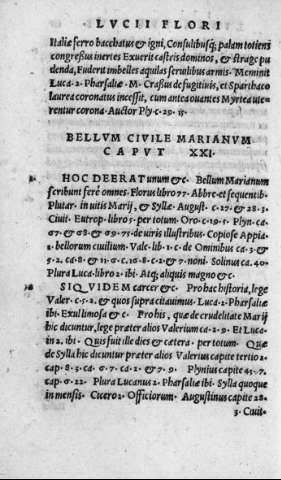 LVCII FLORI
Italiæ ferro bacchatus & igni, Consulibusq; palam totiens
congreßus inertes Exuerit castris dominos, & strage pu
denda, Fuderit imbelles aquilas seruilibus armis. Meminit
Luca. 2. Pharsaliæ. M. Craßus de fugitiuis, et Sparthaco
laurea coronatus incessit, cum antea ouantes Myrtea ute
rentur corona. Auctor Ply. c. 29. 15.
BELLVM CIVILE MARIANVM
CAPVT XXI.
HOC DEERAT unum &c. Bellum Marianum
scribunt fere omnes. Florus libro 77. Abbre. et sequentib.
Plutar. in uitis Marij, & Sylla. August. c. 27. & 28. 3.
Ciuit. Eutrop. libro 5. per totum. Oro. c. 19. 5. Plyn. ca.
67. & 68. & 69. 75. de uiris illustribus. Copiose Appia.
2. bellorum ciuilium. Vale. lib. 1. c. de Ominibus ca. 3. &
5. 2. ca. 8. & 11. 6. c. 16. 8. c. 2. & 7. noni. Solinus ca. 40.
Plura Luca. libro 2. ibi. Atq; aliquis magno &c.
SIQVIDEM carcer &c. Pro hac historia, lege
Valer. c. 5. 2. & quos supra citauimus. Luca. 2. Pharsaliæ
ibi. Exul limosa &c. Pro his, quæ de crudelitate Marij
hic dicuntur, lege præter alios Valerium ca. 2. 9. Et Luca.
in 2. ibi. Quis fuit ille dies & cætera. per totum. Quæ
de Sylla hic dicuntur præter alios Valerius capite tertio 2.
cap. 8. 3. ca. 6. 7. ca. 2. & 7. 9. Plynius capite 43. 7.
cap. 6. 22. Plura Lucanus 2. Pharsaliæ ibi. Sylla quoque
in mensis. Cicero 2. Officiorum. Augustinus capite 28.
3. Ciuit.